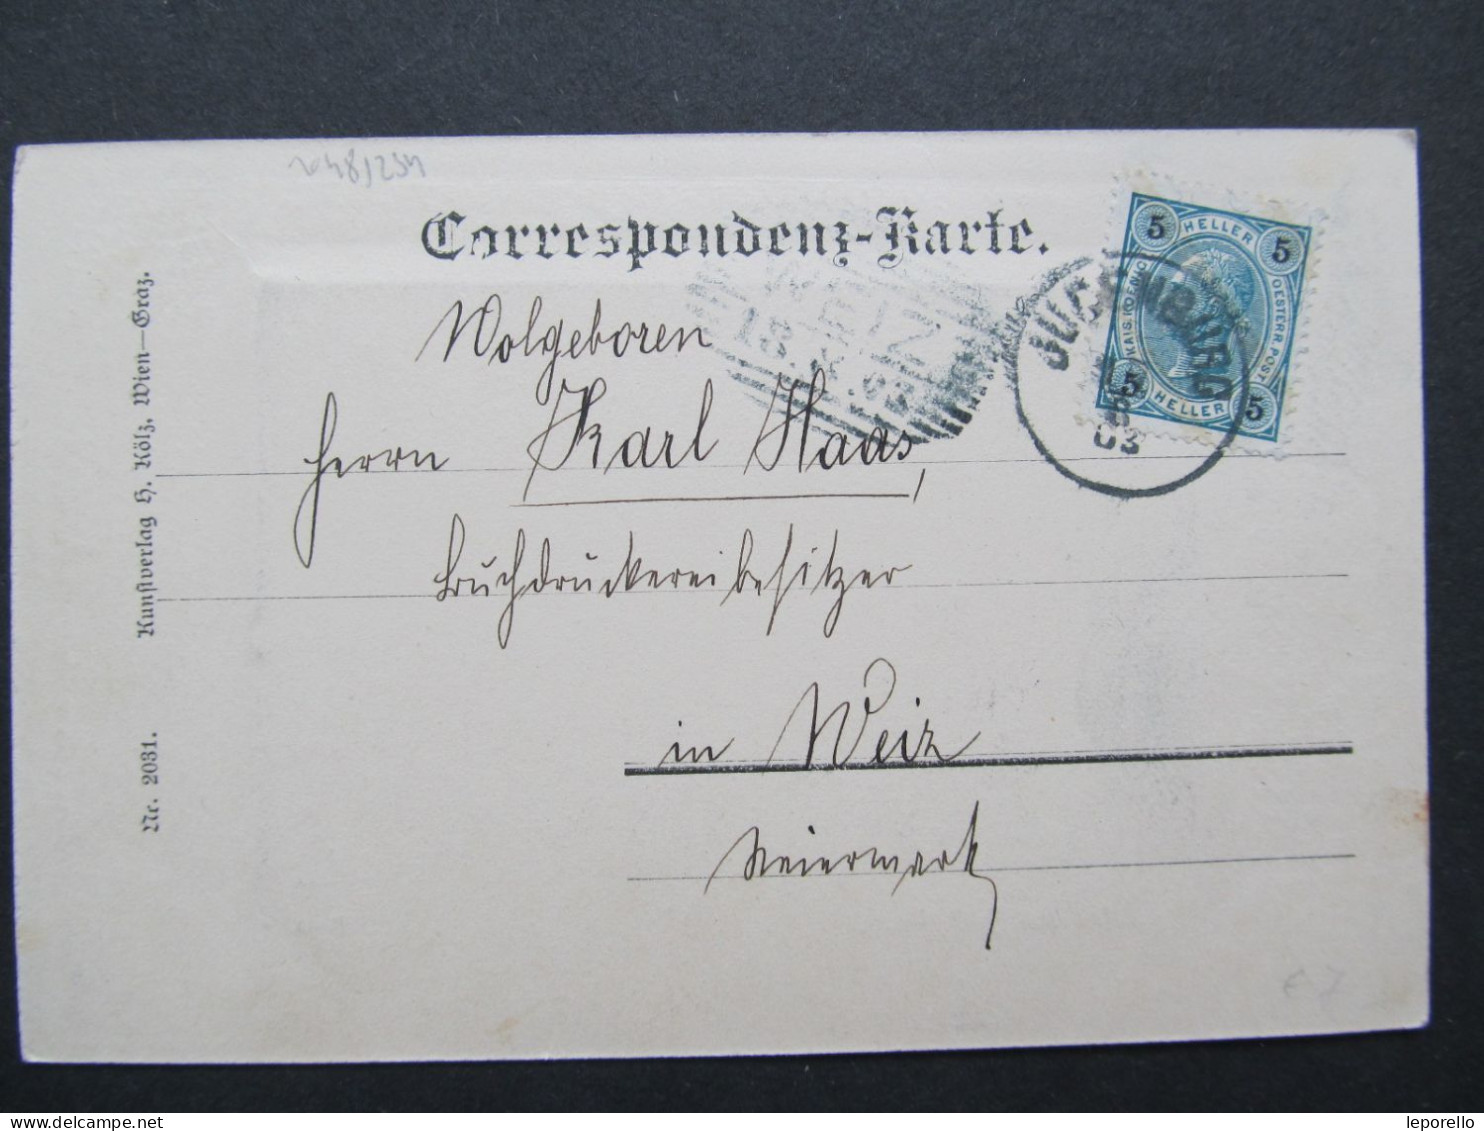 Correspondenz-Karte.
5 HELLER 5
KAIS. KOENIG. OESTERR. POST
5 HELLER 5
03
WEIZ
Wolgeboren
Herrn Karl Haas,
Buchdruckereibesitzer
in Weiz
Steiermark
Nr. 2031. Kunstverlag H. Kölz, Wien—Graz.
www.delcampe.net
leporello